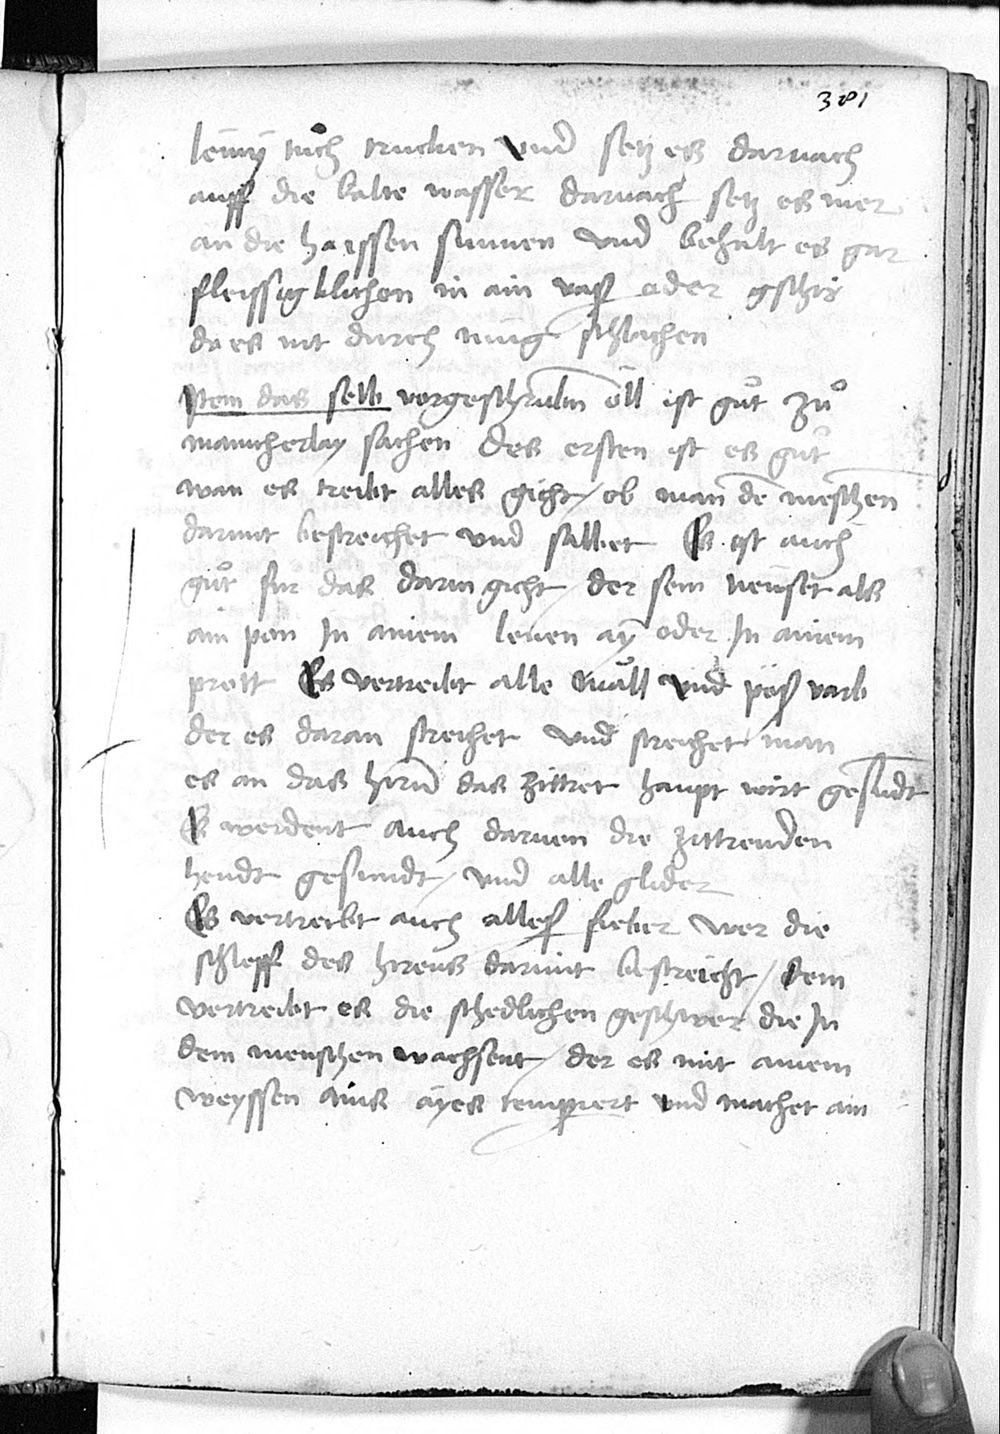 381
leiniy tuͦch trucken vnd setz es darnach
auff die kalte wasser darnach setz es mer
an die haissen sunnen vnd behalt es gar
fleissigklichen in ain vas oder gschir
da es nit durch mug schlachen
Item das selb vorgeschriben öll ist guͦt zuͦ
manicherlay sachen des ersten ist es guͦt
wan es treibt alles gicht / ob man dē meschen
darmit bestreichet vnd salbet Es ist auch
guͦt fur das darm gicht / der sein neuset als
ain pon In ainem lenen ay oder In ainem
prott Es vertreibt alle mäll vnd pös varb
der es daran streichet vnd streichet man
es an das hirn das zittret haupt wirt gesundt
Es werdent auch daruon die zittrenden
hendt gesundt / vnd alle glider
Es vertreibt auch alles fieber wer die
schleff des hirens darmit bestreicht / dem
vertreibt es die schedlichen geschwer die In
dem menschen wachsent / der es mit ainem
weyssen ains ayes temperiert vnd machet ain